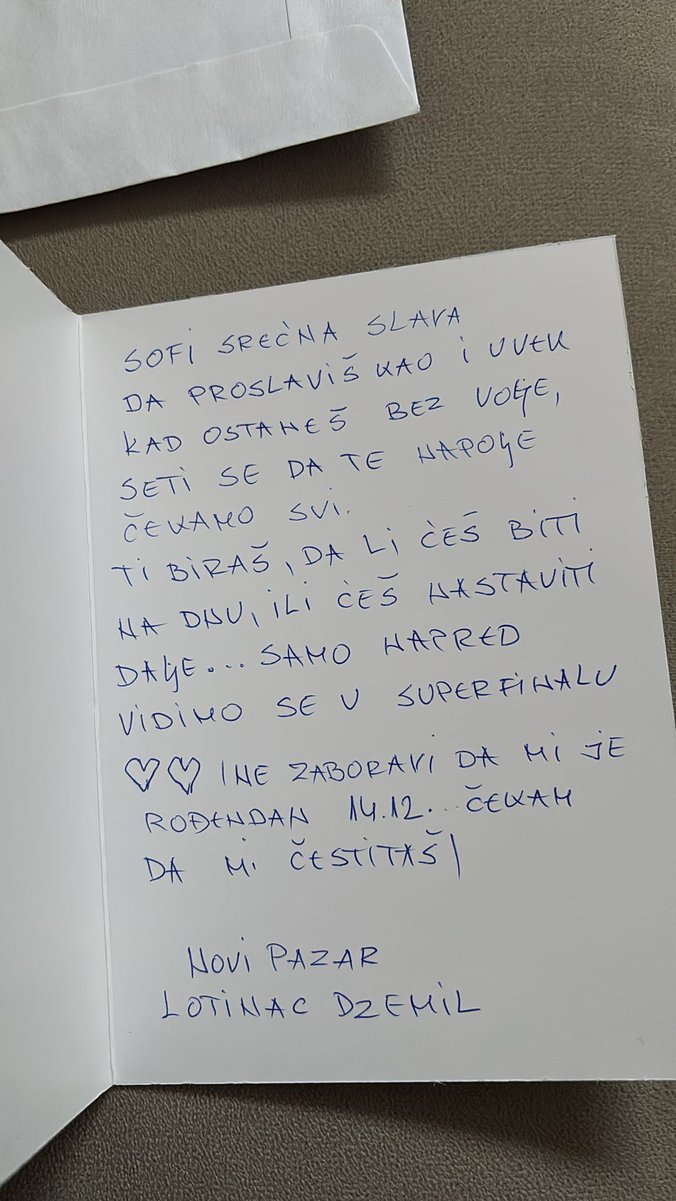 SOFI SREĆNA SLAVA
DA PROSLAVIŠ KAO I UVEK
KAD OSTANEŠ BEZ VOLJE,
SETI SE DA TE NAPOLJE
ČEKAMO SVI.
TI BIRAŠ, DA LI ĆEŠ BITI
NA DNU, ILI ĆEŠ NASTAVITI
DALJE... SAMO NAPRED
VIDIMO SE U SUPERFINALU
♡♡ I NE ZABORAVI DA MI JE
ROĐENDAN 14.12... ČEKAM
DA MI ČESTITAŠ!
NOVI PAZAR
LOTINAC DZEMIL